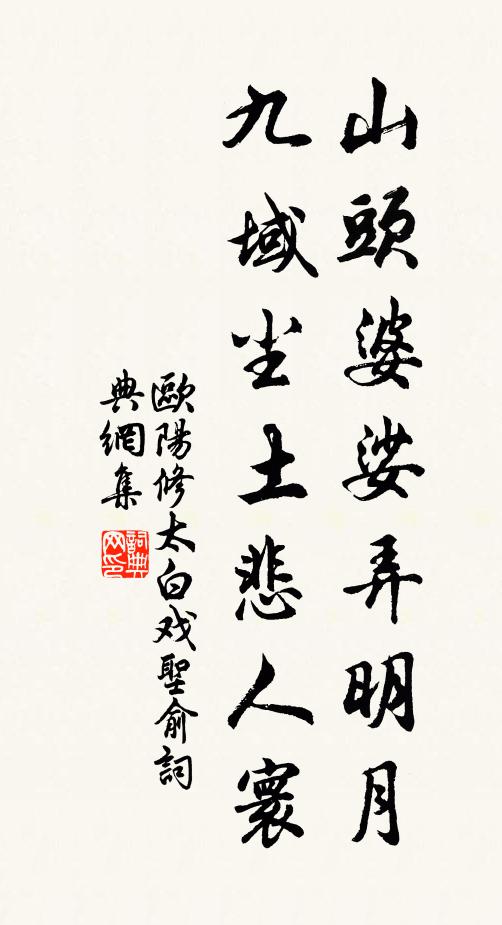 山頭婆娑弄明月
九域尘土悲人寰
歐陽修太白戏聖俞詞
典網集
詞典
网印